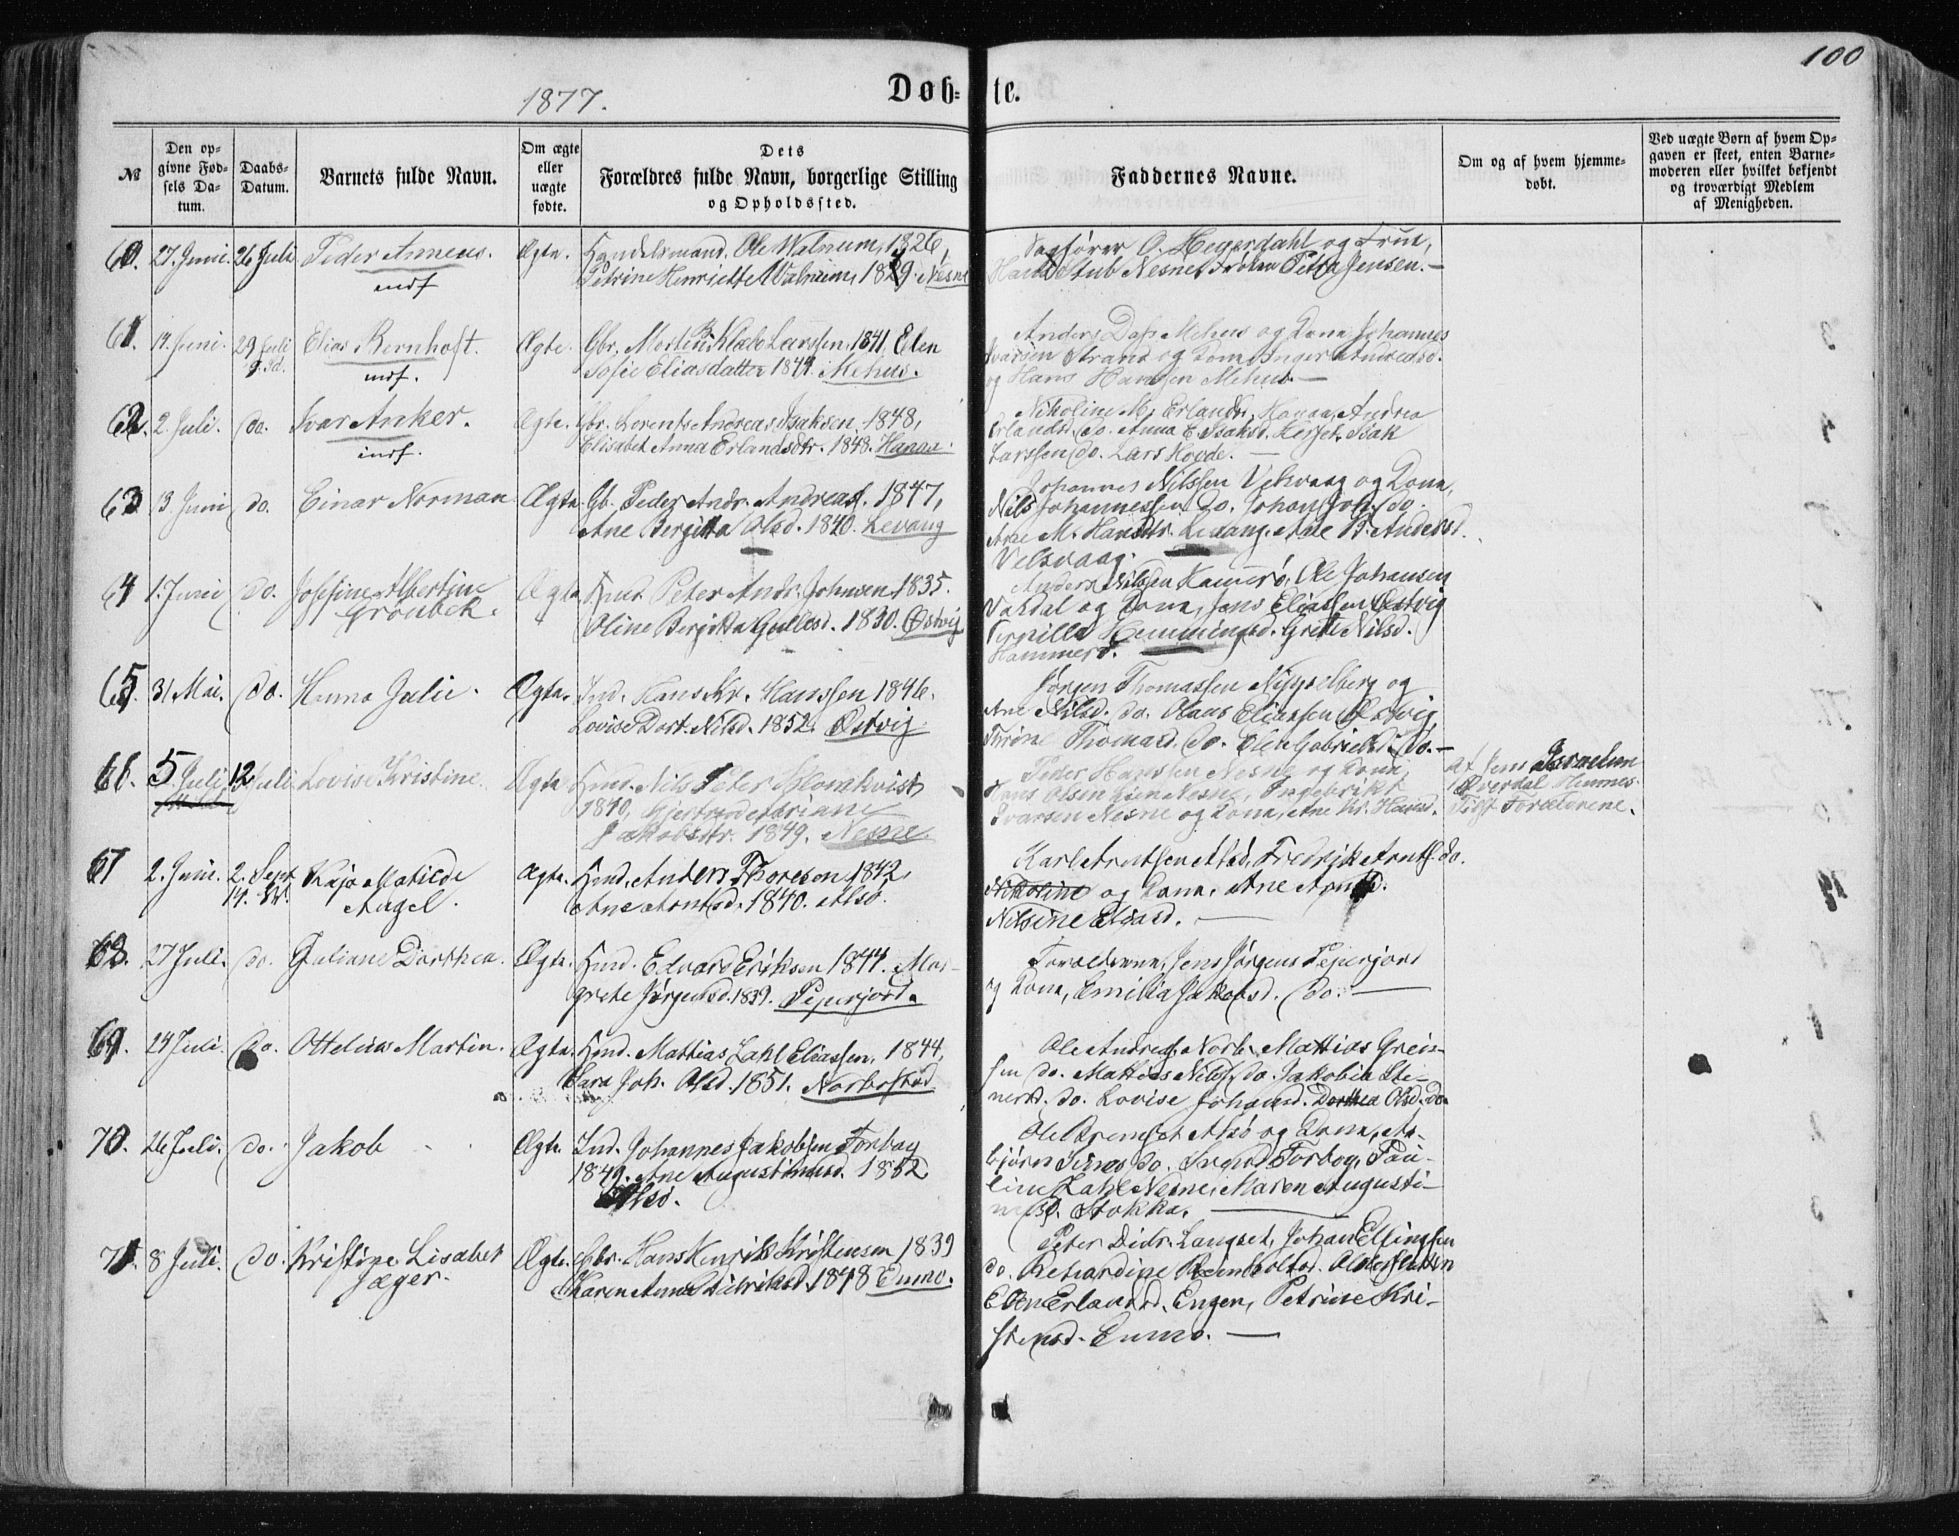 100
1877.
Døb-te.
№
Den opgivne Fødsels Datum.
Daabs-Datum.
Barnets fulde Navn.
Om ægte eller uægte fødte.
Dets Forældres fulde Navn, borgerlige Stilling og Opholdssted.
Faddernes Navne.
Om og af hvem hjemmedøbt.
Ved uægte Børn af hvem Opgaven er skeet, enten Barnemoderen eller hvilket bekjendt og troværdigt Medlem af Menigheden.
60. 27. Juni 26 Juli Peder Anneus. Ægte. Handelsmand. Ole Walnum, 1826,
indf Petrine Henriette Walnum, 1829 Nesne
Sagfører O. Hegerdahl og Frue,
Stub Nesne, Frøken Petra Jensen.—
61. 19. Juni. 29 Juli Elias Bernhoft. Ægte. Gbr. Morten Klæbo Larssen. 1841, Elen
indf. Sofie Eliasdatter 1844. Mehus.
Anders Dass Mehus og Kona, Johannes
Ivarsen Strand og Kona, Inger Andreasd.
og Hans Hanssen Mehus.—
62. 2. Juli. do. Ivar Anker. Ægte. Gbr. Lorents Andreas Isaksen, 1848,
indf. Elisabet Anna Erlandsdtr. 1848. Hanas.
Nikoline M. Erlandsd. Hanas, Andrea
Erlandsd. do. Anna E. Isaksd. Isak
Larssen do. Lars Hovde. —
63 13. Juni do. Einar Norman Ægte. Gb. Peder Andr. Andreass. 1847,
Ane Bergitta Olsd. 1840. Levang
Johannes Nilssen Vikvaag og Kona,
Nils Johannessen do. Johan Joh. do.
Ane M. Hansdtr. Levang. Ane B. Andersd.
Velsvaag.
64 1. Juni do. Josefine Albertine Ægte Peter Andr. Johnsen 1835.
Grønbek. Oline Bergitta Gullesd. 1830. Østvig
Anders Nilssen Hamerø, Ole Johansen
Vakdal og Kona, Jens Eliassen Østvig
Pernilla Hemmingsd. Grete Nilsd.
Hammerø.
65. 31 Mai. do. Hanna Julie. Ægte. Ind. Hans Kr. Hanssen 1846.
Lovise Dort. Nilsd. 1852. Østvig
Jørgen Thomassen Nipselberg og
Ane Nilsd. do. Olaus Eliassen Østvig,
Thomasd. do. Elen Gabrielsd. do.—
66. 5 Juli 12 Juli Lovise Kristine. Ægte Hmd. Nils Peter Blomkvist
1840, Gjertrud Mariane
Jakobsdtr. 1849. Nesne.
Peder Hanssen Nesne og Kona,
Hans Olsen Nesne, Ingebrikt
Ivarsen Nesne og Kona, Ane Kr. Hansd.
Af Jens Israelsen
Øverdal Hemnes
Forældrene.
67 2. Juni. 2. Sept Kaja Matilde Ægte. Hmd. Anders Thoreson 1842
14. Angel. Ane Arntsd. 1840. Alsø.
Karl Arntsen Alsø, Fredrik Arnts. do.
Nikoline og Kona, Ane Arntsd.
Nilsine Eliasd. —
68. 27 Juli. do. Juliane Dorthea. Ægte. Hmd. Edvard Eriksen 1844. Mar-
grete Jørgensd. 1839. Peperjord.
Forældrene, Jens Jørgens Peperjord
og Kona, Emilia Jakobsd. do. —
69. 24 Juli. do. Ottelius Martin. Ægte. Hmd. Mattias Zahl Eliassen, 1844,
Sara Joh. Olsd. 1851. Norbostad
Ole Andreas. Norb. Mattias Grein-
sen do. Mattias Nilss. do. Jakobia Ste-
nersd. do. Lovise Johansd. Dorthea Olsd. do.
70. 26 Juli. do. Jakob Ægte. Ind. Johannes Jakobsen Forbog
1849. Ane Augustinusd. 1852
Alsø.
Ole Arentsen Alsø og Kona, As-
bjørn do. Forbog, Pau-
line Zahl Nesne, Maren Augusti-
nusd. Stokka. —
71 8 Juli. do. Kristine Lisabet Ægte. Gbr. Hans Henrik Kristensen 1839
Jæger. Karen Anna Didriksd. 1848 Enmo.
Peter Didr. Langset, Johan Ellingsen
do. Rikardine Reinholtsd. Oldersletten
Elen Erlandsd. Engen, Petrine Kri-
stensd. Enmo. —